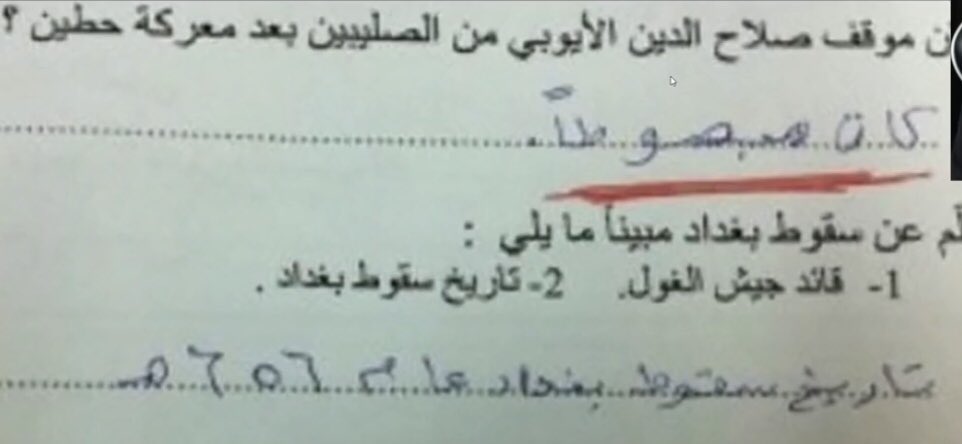 ن موقف صلاح الدين الأيوبي من الصليبيين بعد معركة حطين ؟
كان مبصوطاً.
لّم عن سقوط بغداد مبيناً ما يلي :
1- قائد جيش الغول. 2- تاريخ سقوط بغداد .
تاريخ سقوط بغداد عام ٦٥٦ هـ